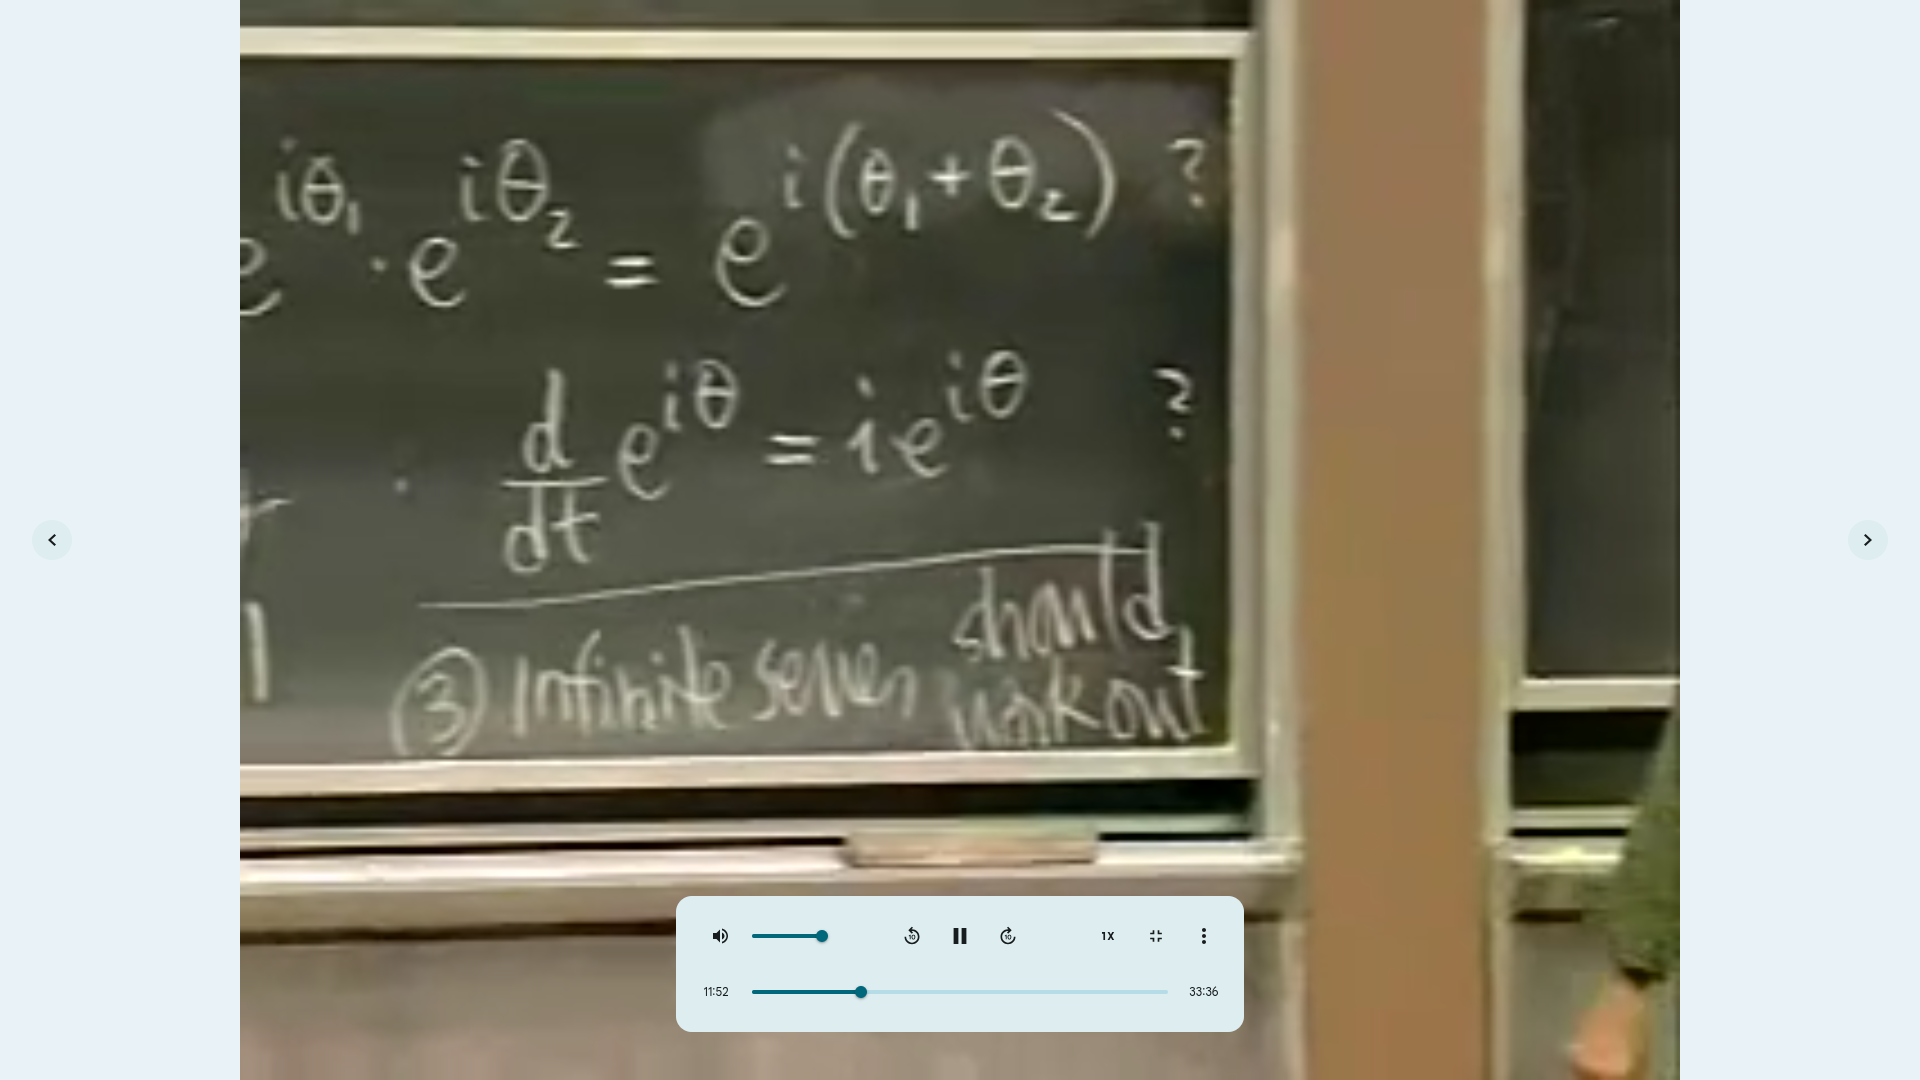 e^{iθ₁} · e^{iθ₂} = e^{i(θ₁+θ₂)} ?
d/dt e^{iθ} = i e^{iθ} ?
③ Infinite series should
work out
1X
11:52 33:36